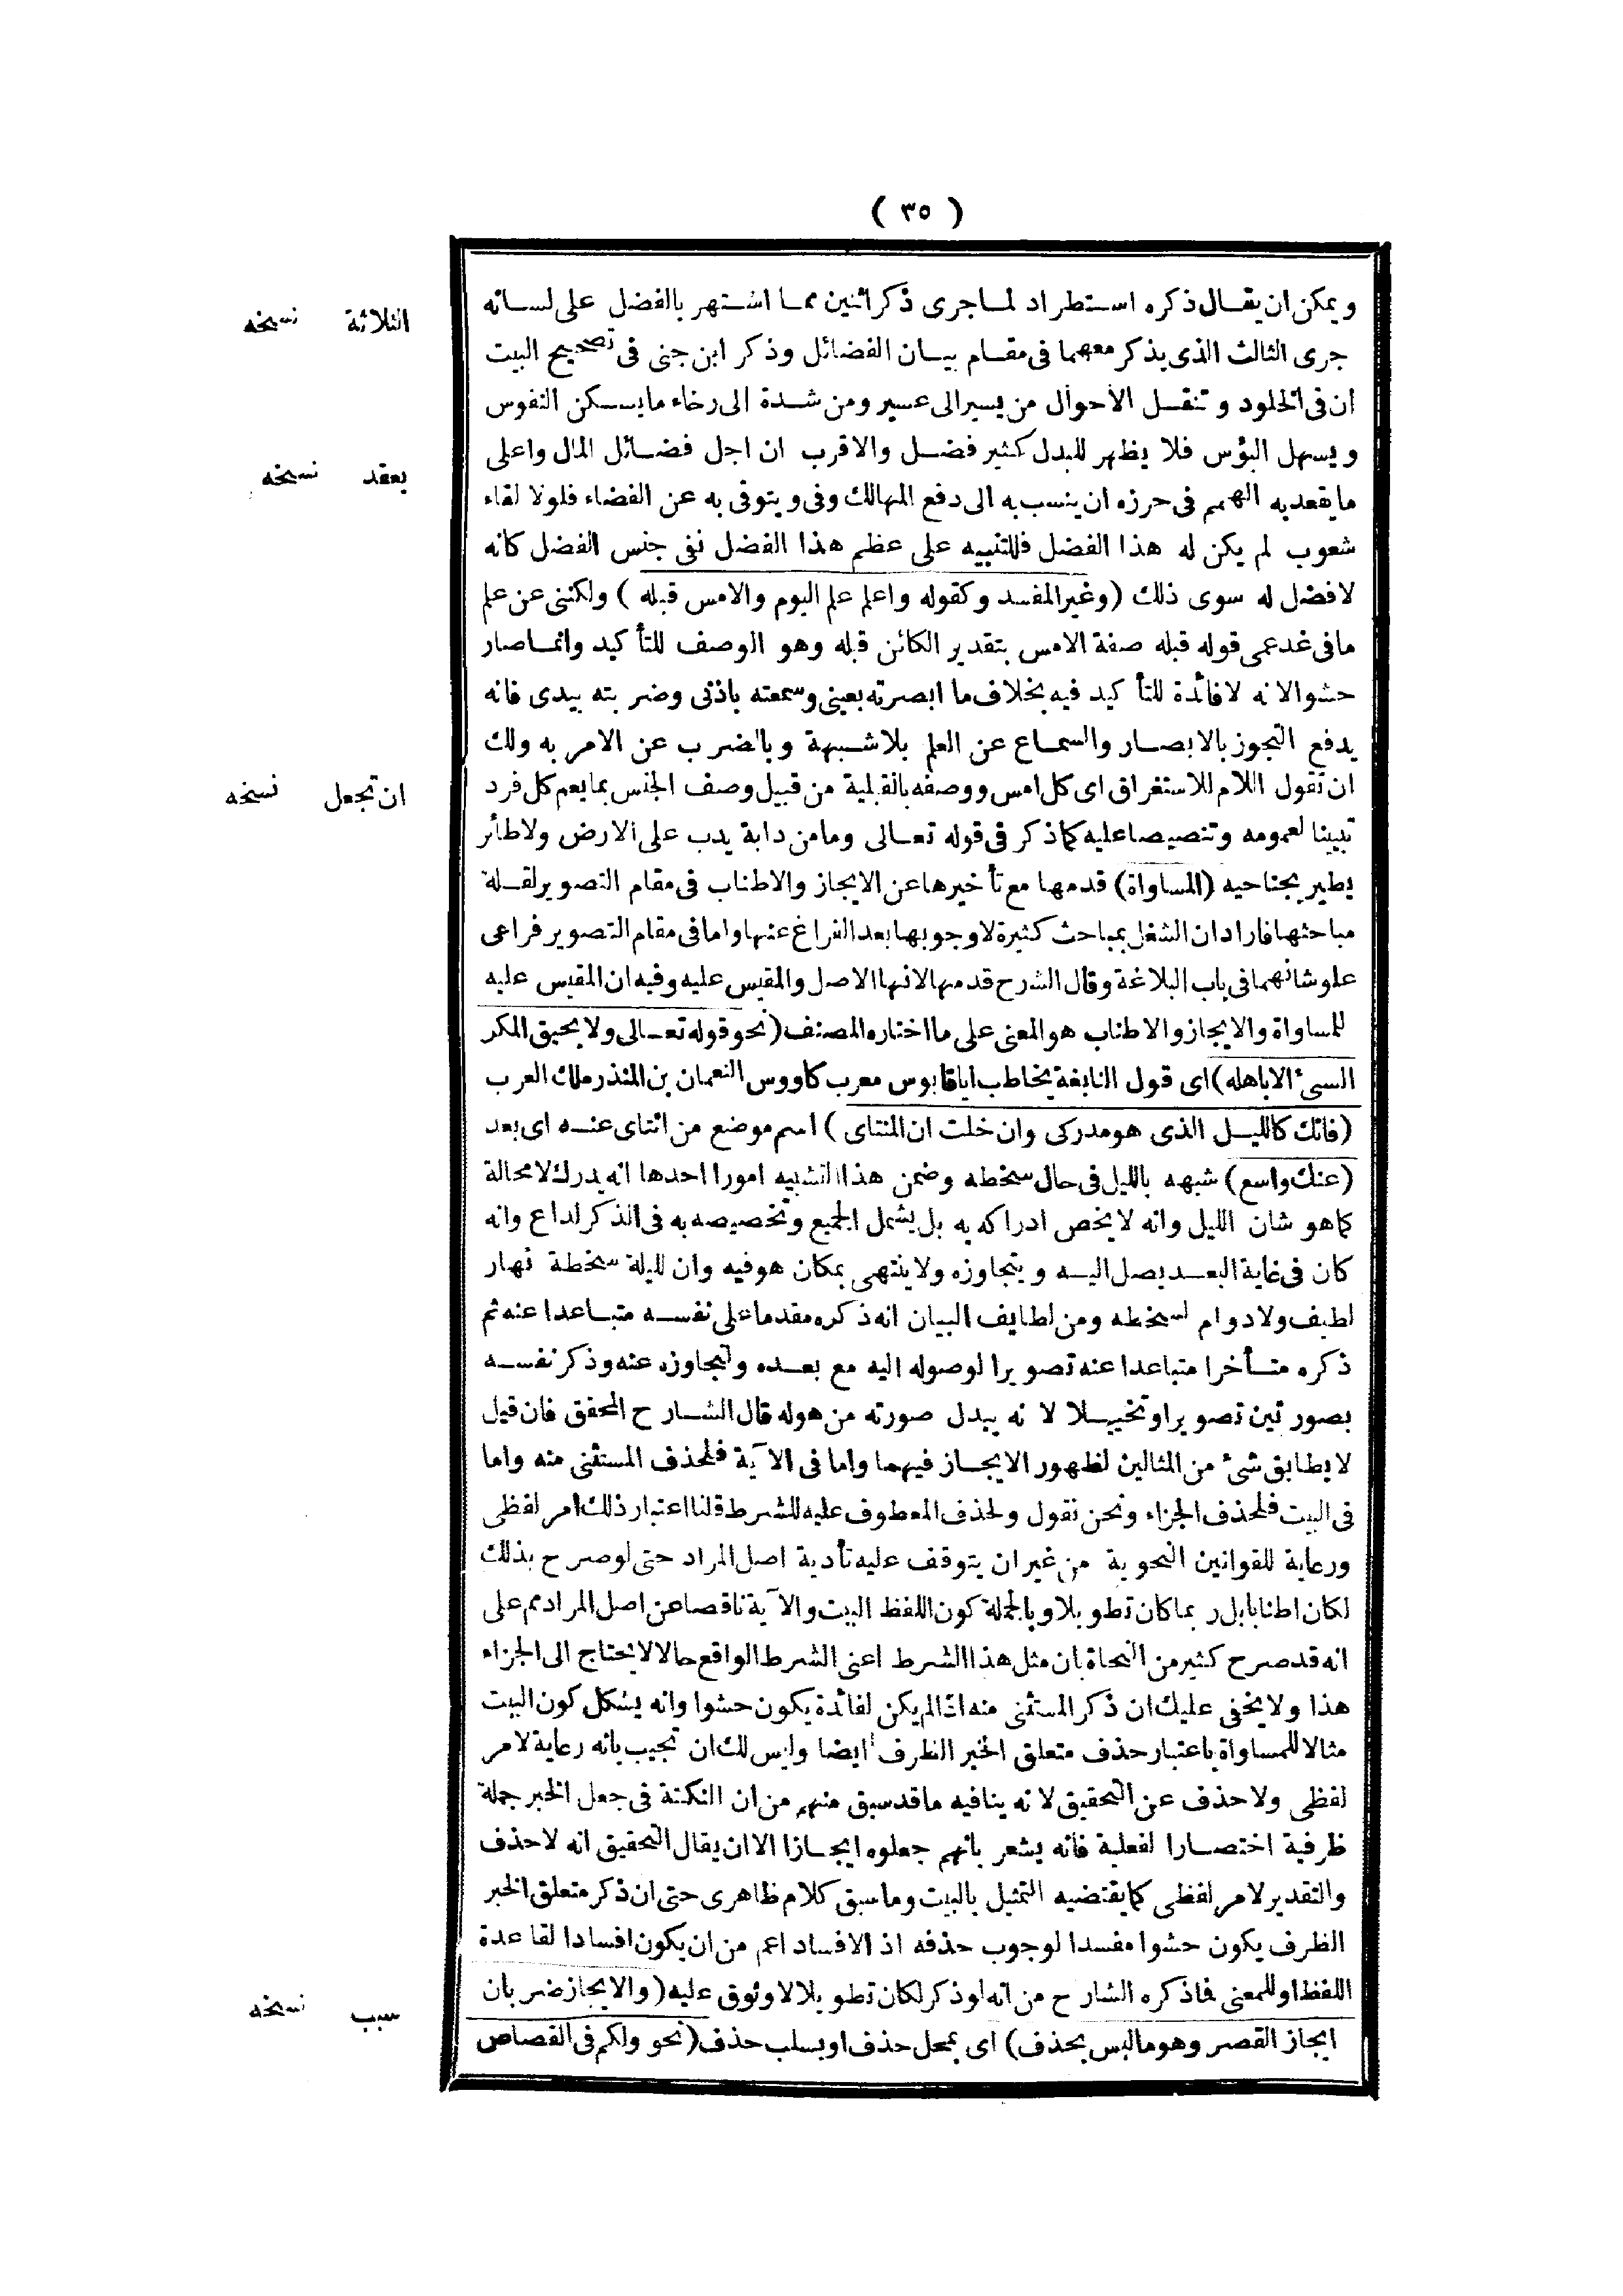 ( ٣٥ )
ويمكن ان يقال ذكره استطراد لما جرى ذكر اثنين مما اشتهر بالفضل على لسانه
جرى الثالث الذى يذكر معهما فى مقام بيان الفضائل وذكر ابن جنى فى تصحيح البيت
ان فى الخلود وتنقل الاحوال من يسير الى عسير ومن شدة الى رخاء ما يسكن النفوس
ويسهل البؤس فلا يظهر للبدل كثير فضل والاقرب ان اجل فضائل المال واعلى
ما يقعد به الهمم فى حرزه ان ينسب به الى دفع المهالك وفى ويتوقى به عن الفضاء فلولا لقاء
شعوب لم يكن له هذا الفضل فللتنبيه على عظم هذا الفضل نفى جنس الفضل كانه
لا فضل له سوى ذلك (وغير المفسد وكقوله واعلم علم اليوم والامس قبله) ولكننى عن علم
ما فى غد عمى قوله قبله صفة الامس بتقدير الكائن قبله وهو الوصف للتأكيد وانما صار
حشوا لانه لا فائدة للتأكيد فيه بخلاف ما ابصرته بعينى وسمعته باذنى وضربته بيدى فانه
يدفع التجوز بالابصار والسماع عن العلم بلا شبهة وبالضرب عن الامر به ولك
ان تقول اللام للاستغراق اى كل امس ووصفه بالقبلية من قبيل وصف الجنس بما يعم كل فرد
تبيينا لعمومه وتنصيصا عليه كما ذكر فى قوله تعالى وما من دابة يدب على الارض ولا طائر
يطير بجناحيه (المساواة) قدمها مع تأخيرها عن الايجاز والاطناب فى مقام التصوير لقلة
مباحثها فاراد ان الشغل بمباحث كثيرة لا وجوبها بعد الفراغ عنها واما فى مقام التصوير فراعى
علو شانهما فى باب البلاغة وقال الشرح قدمها لانها الاصل والمقيس عليه وفيه ان المقيس عليه
للمساواة والايجاز والاطناب هو المعنى على ما اختاره المصنف (نحو قوله تعالى ولا يحيق المكر
السىء الا باهله) اى قول النابغة يخاطب اباقابوس معرب كاووس النعمان بن المنذر ملك العرب
(فانك كالليل الذى هو مدركى وان خلت ان المنتاى) اسم موضع من انتاى عنه اى بعد
(عنك واسع) شبهه بالليل فى حال سخطه وضمن هذا التشبيه امورا احدها انه يدرك لا محالة
كما هو شان الليل وانه لا يخص ادراكه به بل يشمل الجميع وتخصيصه به فى الذكر لداع وانه
كان فى غاية البعد يصل اليه ويتجاوزه ولا ينتهى بمكان هو فيه وان لليلة سخطة نهار
لطيف ولا دوام لسخطه ومن لطايف البيان انه ذكره مقدما على نفسه متباعدا عنه ثم
ذكره متأخرا متباعدا عنه تصويرا لوصوله اليه مع بعده ولتجاوزه عنه وذكر نفسه
بصورتين تصويرا وتخييلا لانه يبدل صورته من هوله قال الشارح المحقق فان قيل
لا يطابق شىء من المثالين لظهور الايجاز فيهما واما فى الآية فلحذف المستثنى منه واما
فى البيت فلحذف الجزاء ونحن نقول ولحذف المعطوف عليه للشرط قلنا اعتبار ذلك امر لفظى
ورعاية للقوانين النحوية من غير ان يتوقف عليه تأدية اصل المراد حتى لو صرح بذلك
لكان اطنابا بل ربما كان تطويلا وبالجملة كون اللفظ البيت والآية ناقصا عن اصل المراد مم على
انه قد صرح كثير من النحاة بان مثل هذا الشرط اعنى الشرط الواقع حالا لا يحتاج الى الجزاء
هذا ولا يخفى عليك ان ذكر المستثنى منه اذا لم يكن لفائدة يكون حشوا وانه يشكل كون البيت
مثالا للمساواة باعتبار حذف متعلق الخبر الظرف ايضا وليس لك ان تجيب بانه رعاية لامر
لفظى ولا حذف عن التحقيق لانه ينافيه ما قد سبق منهم من ان النكتة فى جعل الخبر جملة
ظرفية اختصارا لفعلية فانه يشعر بانهم جعلوه ايجازا الا ان يقال التحقيق انه لا حذف
والتقدير لامر لفظى كما يقتضيه التمثيل بالبيت وما سبق كلام ظاهرى حتى ان ذكر متعلق الخبر
الظرف يكون حشوا مفسدا لوجوب حذفه اذ الافساد اعم من ان يكون افسادا لقاعدة
اللفظ او للمعنى فما ذكره الشارح من انه لو ذكر لكان تطويلا لا وثوق عليه (والايجاز ضربان
ايجاز القصر وهو ما ليس بحذف) اى بمحل حذف او بسلب حذف (نحو ولكم فى القصاص
الثلاثة نسخه
يعقد نسخه
ان تجعل نسخه
سبب نسخه